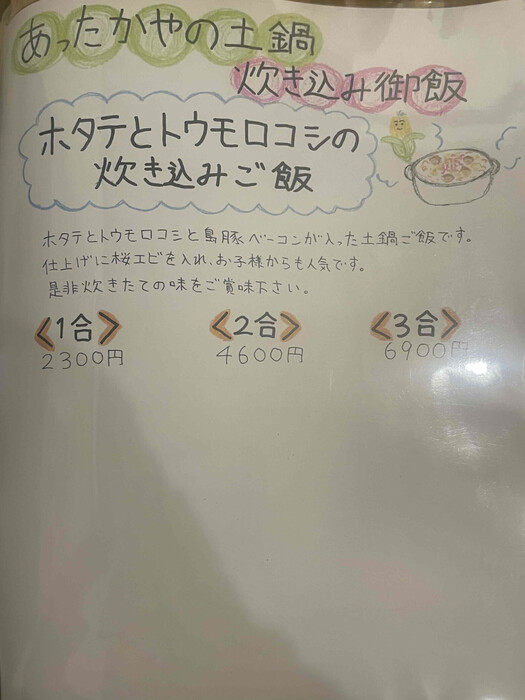 あったかやの土鍋
炊き込み御飯
ホタテとトウモロコシの
炊き込みご飯
ホタテとトウモロコシと島豚ベーコンが入った土鍋ご飯です。
仕上げに桜エビを入れ、お子様からも人気です。
是非炊きたての味をご賞味下さい。
《1合》 《2合》 《3合》
2300円 4600円 6900円